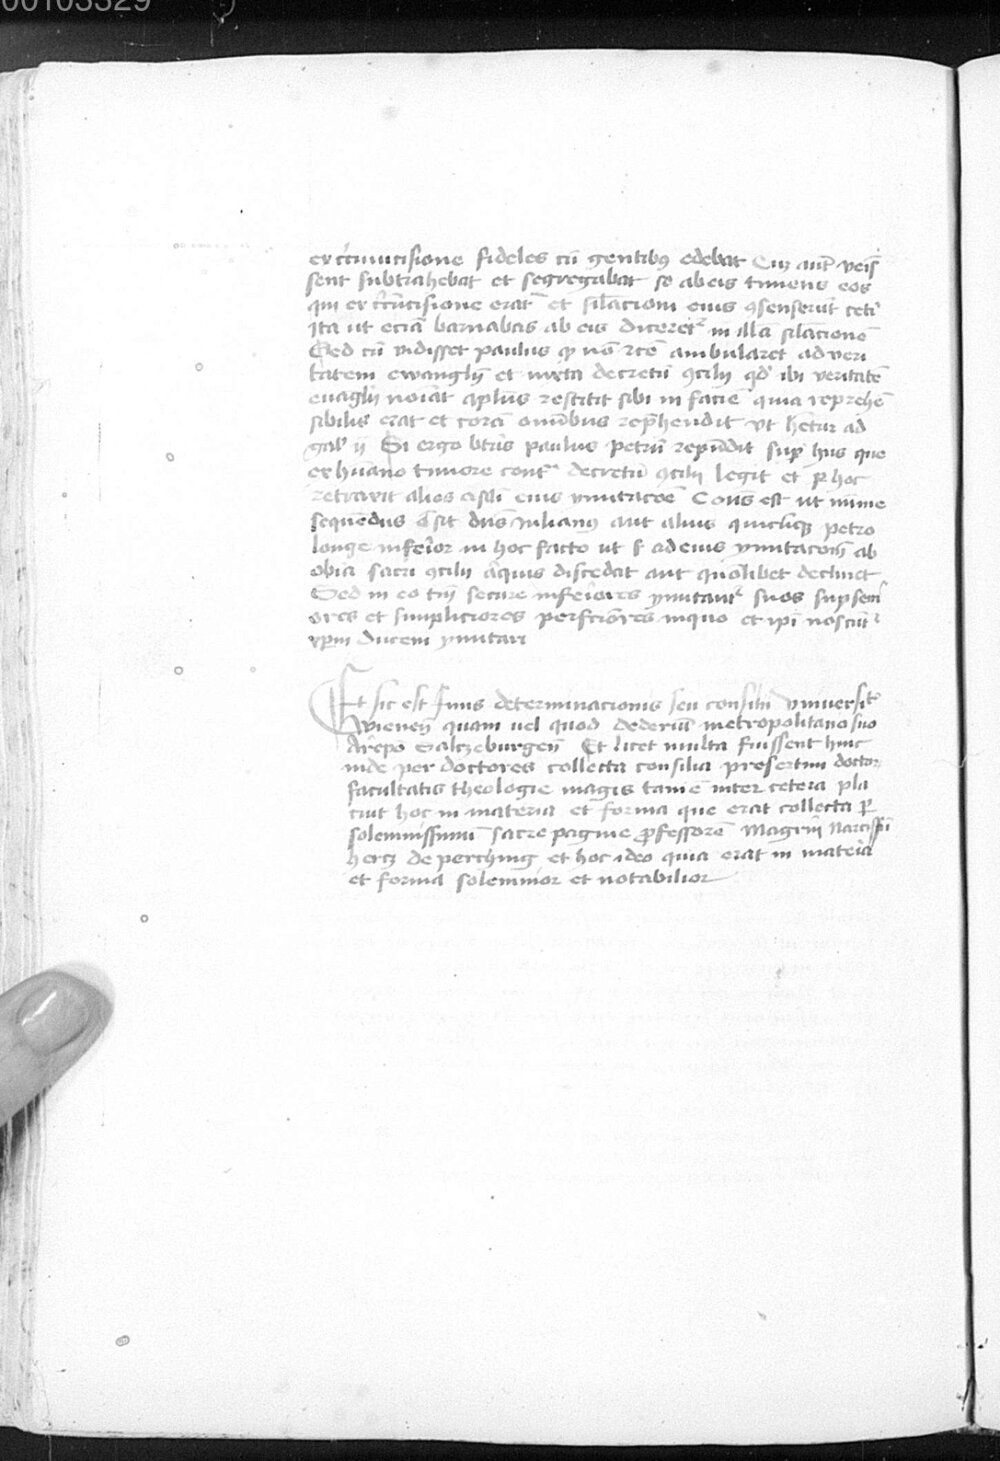 00103329
ex circumcisione fideles cū gentibꝫ edebat Cuꝫ autē veīs
sent subtrahebat et segregabat se ab eis timens eos
qui ex circūcisione erāt et sił̄acioni eius ꝯsenserūt ceti
Ita ut eciā barnabas ab eis duceretᵘʳ in illā sił̄acionē
Sed cū vidisset paulus ꝙ nō rc̄e ambularet ad veri
tatem ewanglij et iuxta decretū ꝯcilij qđ ibi veritatē
euaglij noīat aplūs restitit sibi in faciē quia reprehē
sibilis erat et corā omībus rep̄hendit vt hetur ad
gal' ij Si ergo btūs paulus petrū rep̄ndit suꝑ hijs que
ex hūano timore contᵃ decretū ꝯcilij legit et ꝑ hoc
retraxit alios eius ymitacōe Cons̄ est ut mīme
sequēdus sit dn̄s Julianꝰ aut alius quicūqꝫ petro
longe inferior in hoc facto ut ad eius ymitacōem ab
obīa sacri ꝯcilij aq̄uis discedat aut quōlibet declinet
Sed in eo tn̄ secure inferiores ymitantᵘʳ suos supseni
ores et simpliciores perfectiores inquo et ip̄i noscūtᵘʳ
xp̄m ducem ymitari
Et sic est finis determinacionis seu consilij vniuersitᵗⁱˢ
wienen̄ quam uel quod dederūt metropolitano suo
Arēpo Saltzeburgen̄ Et licet multa fuissent hinc
inde per doctores collecta consilia presertim doctor
facultatis theologie magis tamē inter cetera pla
cuit hoc in materia et forma que erat collecta ꝑ
solemnissimū sacre pagine ꝓfessorē Magrm̄ Narcissū
hertz de perching et hoc ideo quia erat in materia
et forma solemnior et notabilior